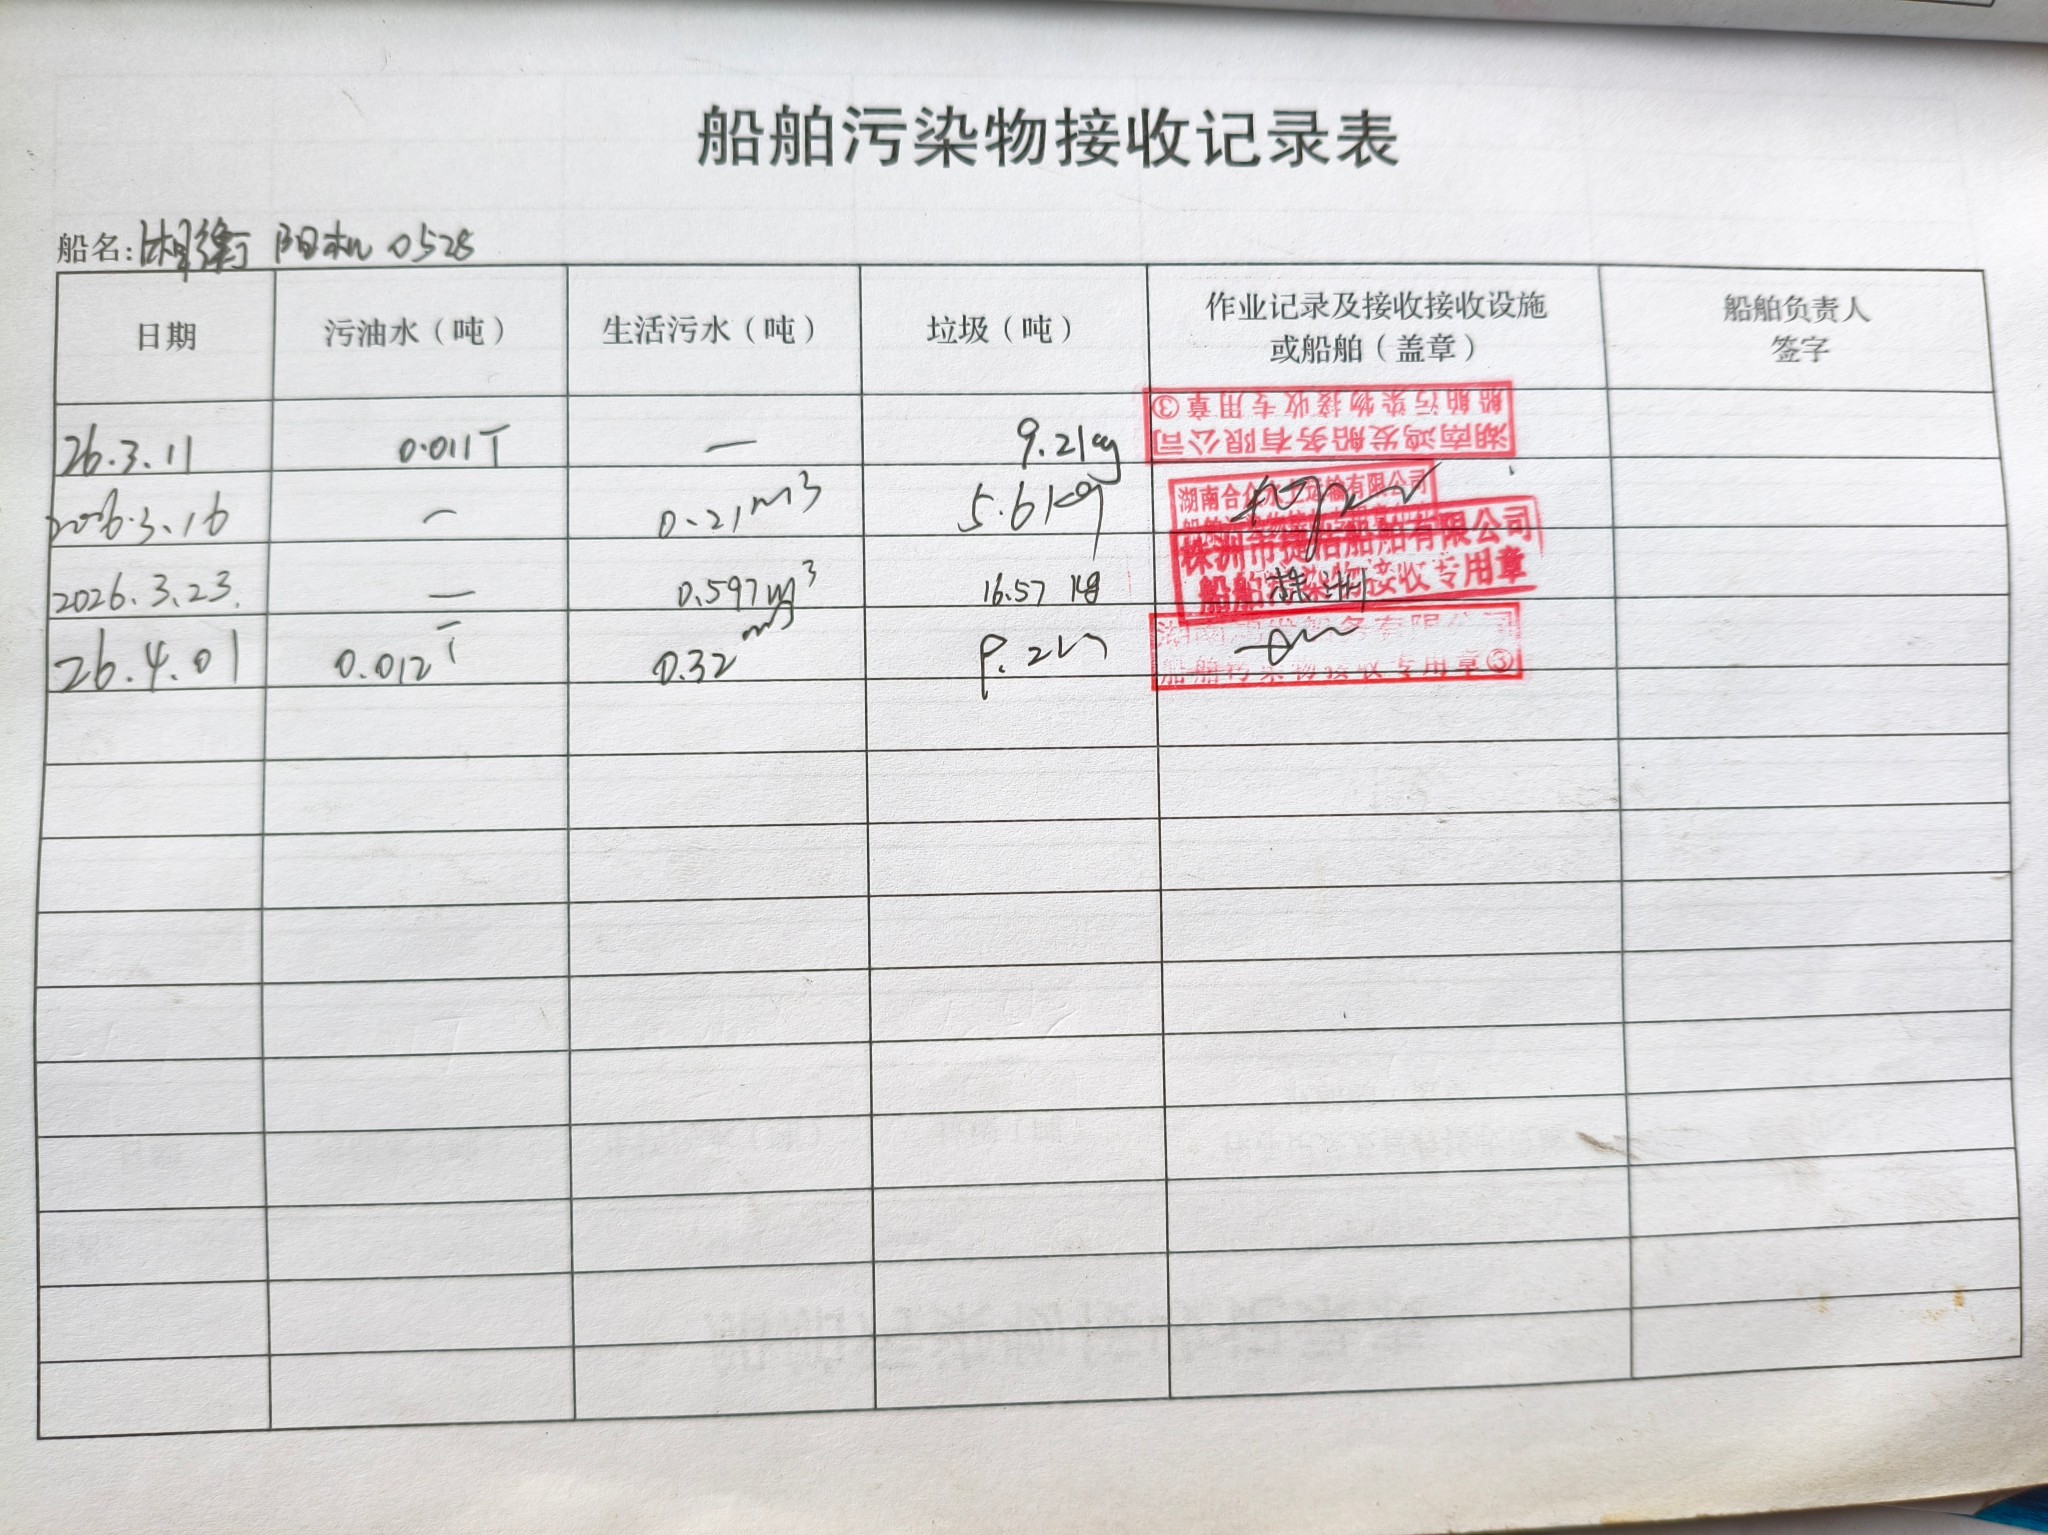 船舶污染物接收记录表
船名:湘衡阳机0528
日期 污油水（吨） 生活污水（吨） 垃圾（吨） 作业记录及接收接收设施或船舶（盖章） 船舶负责人签字
26.3.11 0.011T — 9.2kg
船舶污染物接收专用章③
湖南鸿发船务有限公司
2026.3.16 — 0.21m3 5.6kg
湖南合众水上运输有限公司
2026.3.23. — 0.597m3 16.57kg 株洲
株洲市捷浩船舶有限公司
船舶污染物接收专用章
26.4.01 0.012T 0.32m3 9.2
船舶污染物接收专用章③